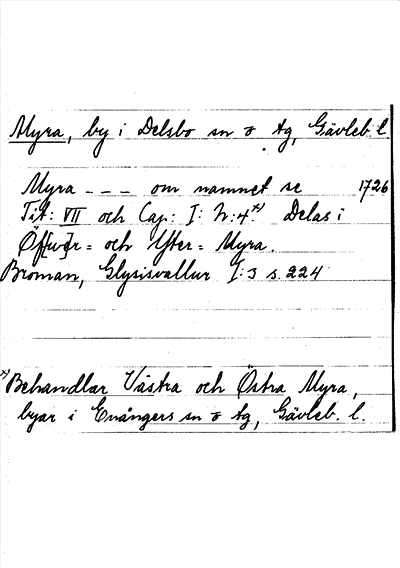 Myra, by i Delsbo sn o tg, Gävleb. l.
Myra --- om namnet se 1726
Tit: VII och Cap: I: N:4.x) Delas i
Öf[w]er= och Ytter= Myra.
Broman, Glysisvallur I:3 s. 224
x) Behandlar Västra och Östra Myra,
byar i Enångers sn o tg, Gävleb. l.